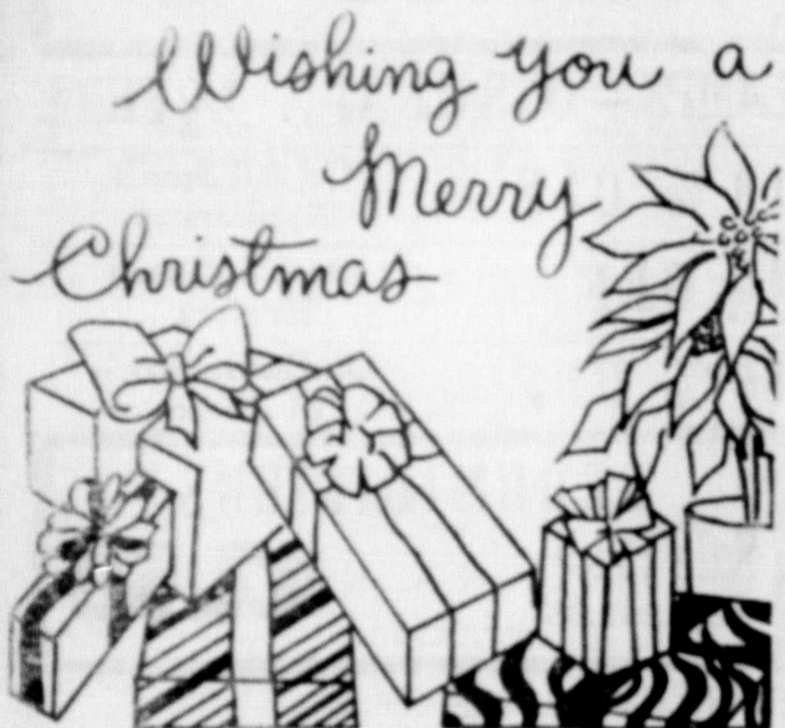 Wishing you a
Merry
Christmas